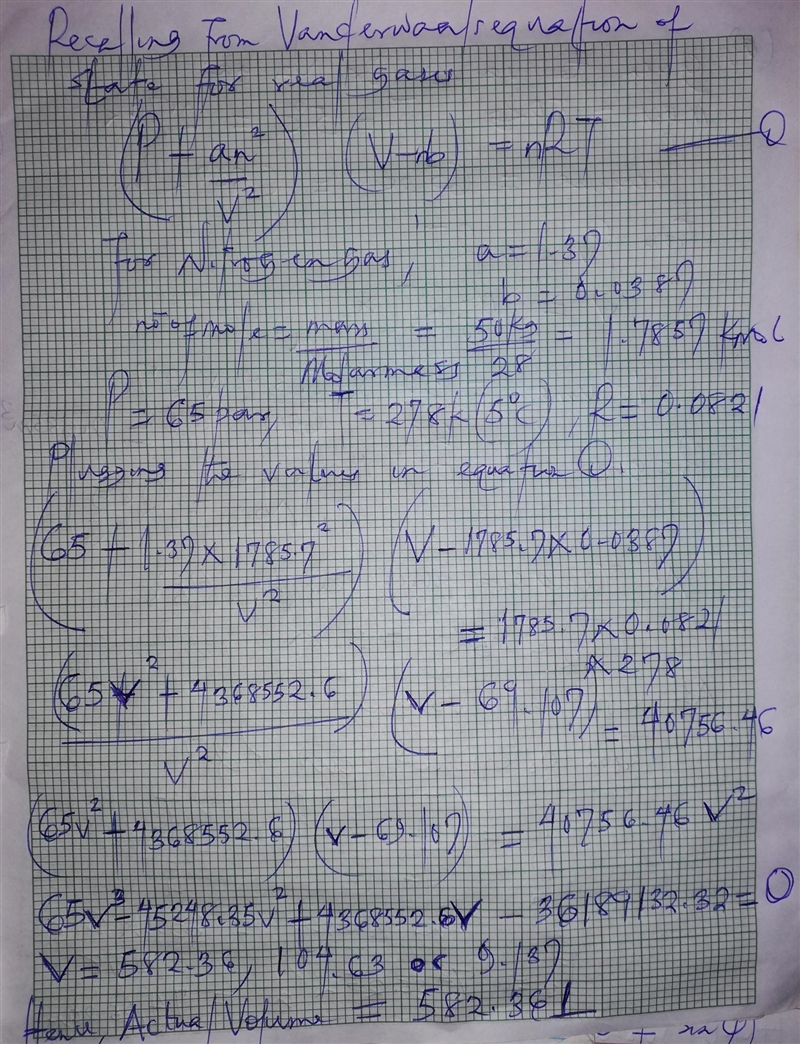 Recalling from Vanderwaals equation of
state for real gases
(P + an²/V²) (V-nb) = nRT ——— ①
For Nitrogen gas, a = 1.37
b = 0.0387
no of mole = mass/Molar mass = 50kg/28 = 1.7857 kmol
P = 65 bar, T = 278K (5°C), R = 0.0821
Plugging the values in equation ①.
(65 + 1.37 × 1785.7²/V²) (V - 1785.7 × 0.0387)
= 1785.7 × 0.0821
× 278
(65V² + 4368552.6)/V² (V - 69.107) = 40756.46
(65V² + 4368552.6) (V - 69.107) = 40756.46 V²
65V³ - 45248.35V² + 4368552.6V - 36189132.32 = 0
V = 582.36, 104.63 or 9.137
Hence, Actual Volume = 582.36L